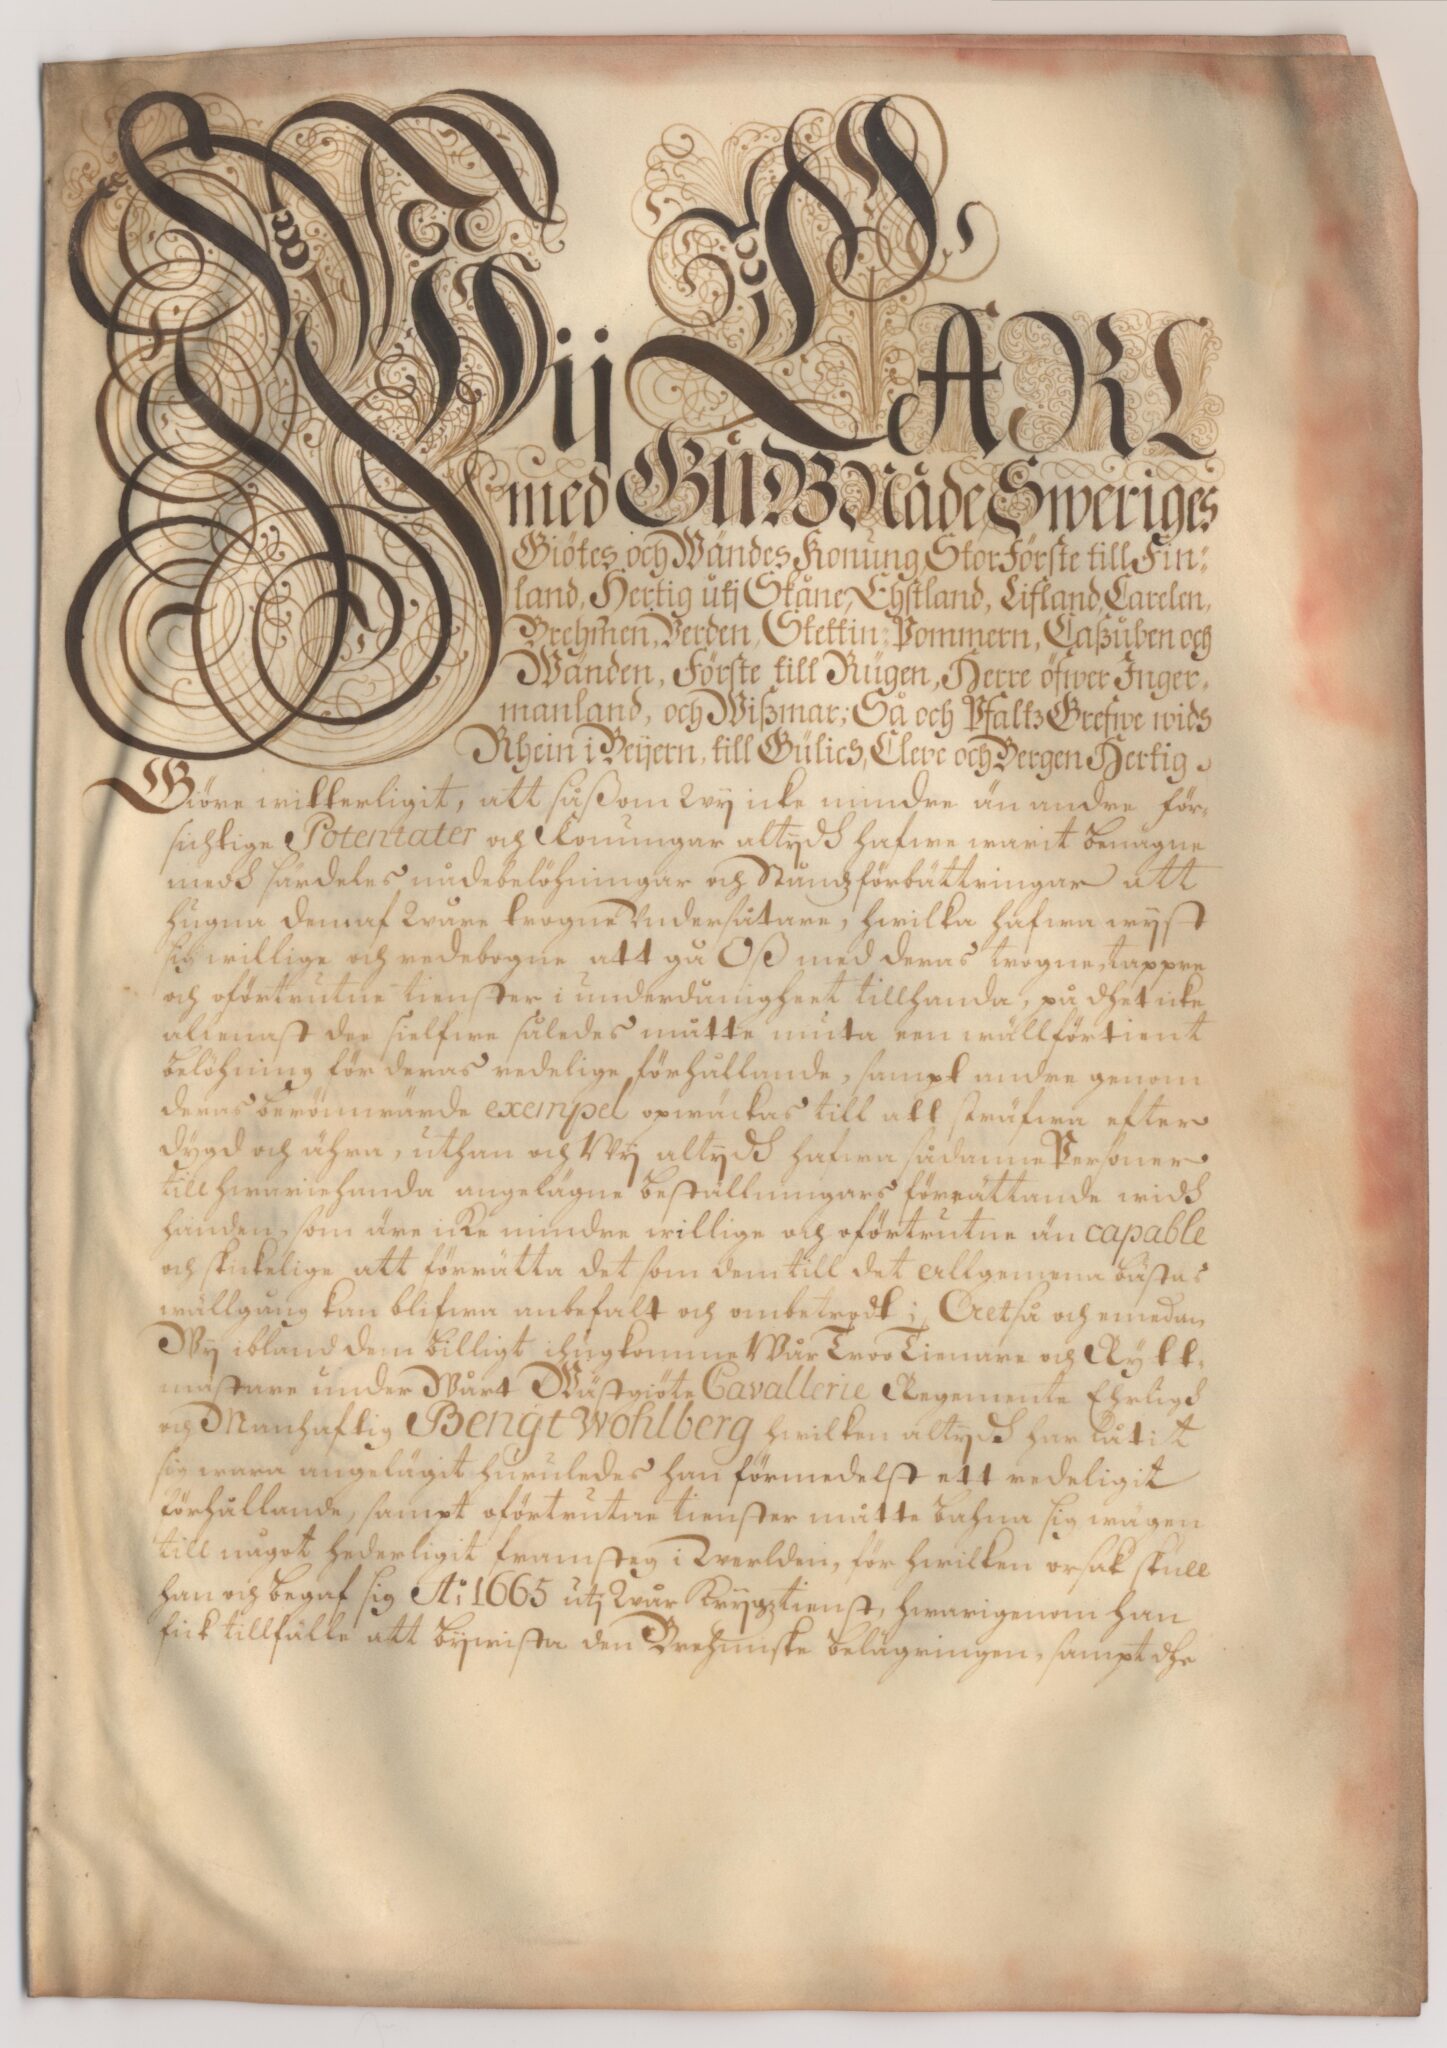 Wij CARL
med GUDZ Nåde Sweriges
Giötes och Wändes Konung, StorFörste till Fin⸗
land, Hertig utj Skåne, Ehstland, Lifland, Carelen,
Brehmen, Verden, Stettin⸗Pommern, Caßuben och
Wänden, Förste till Rügen, Herre öfwer Inger⸗
manland, och Wißmar; Så och PfaltzGrefwe wids
Rhein i Beÿern, till Gülich, Cleve och Bergen Hertig.
Giöre witterligit, att såßom Wij icke mindre än andre för⸗
sichtige Potentater och Konungar altijdh hafwe warit benägne
medh särdeles nådebelöhningar och Ståndzförbättringar att
hugna dem af Wåre trogne Undersåtare, hwilka hafwa wijst
sig willige och redebogne att gå Oß med deras trogne, tappre
och oförtrutne tienster i underdånigheet tillhanda, på dhet icke
allenast dee sielfwe således måtte niuta een wällförtient
belöhning för deras redelige förhållande, sampt andre genom
deras berömwärde exempel opwäckas till att sträfwa efter
dygd och ähra, uthan och Wij altijdh hafwa sådanne Persöner
till hwariehanda angelägne beställningars förrättande widh
handen, som äre icke mindre willige och oförtrutne än capable
och skickelige att förrätta det som dem till det allgemena bästas
wällgång kan blifwa anbefalt och ombetrodt; Altså och emedan
Wij ibland dem billigt ihugkomme Wår Troo Tienare och Rytt⸗
mästare under Wårt Wästgiöte Cavallerie Regemente Ehrligh
och Manhaftig Bengt Wohlberg hwilken altijdh har låtit
sig wara angelägit huruledes han förmedelst ett redeligit
förhållande, sampt oförtrutne tienster måtte bahna sig wägen
till något hederligit framsteg i Werlden, för hwilken orsak skull
han och begaf sig Aö 1665 utj Wår Krijgztienst, hwarigenom han
fick tillfälle att bijwista den Brehmiske belägringen, sampt dhe